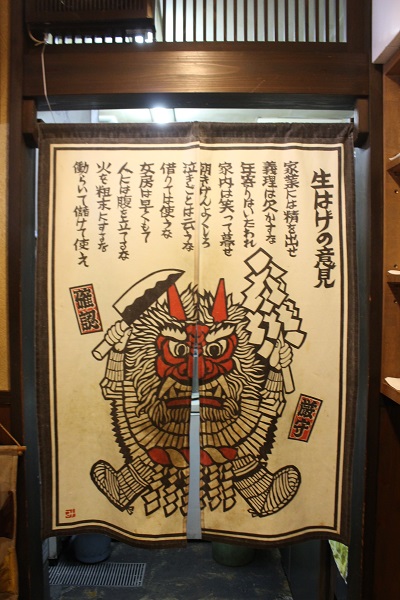 生はげの意見
家業には精を出せ
義理は欠かすな
年寄りはいたわれ
家内は笑って暮せ
朝きげんよくしろ
泣きごとは云うな
借りては使うな
女房は早くもて
人には腹を立てるな
火を粗末にするな
働らいて儲けて使え
確認
厳守